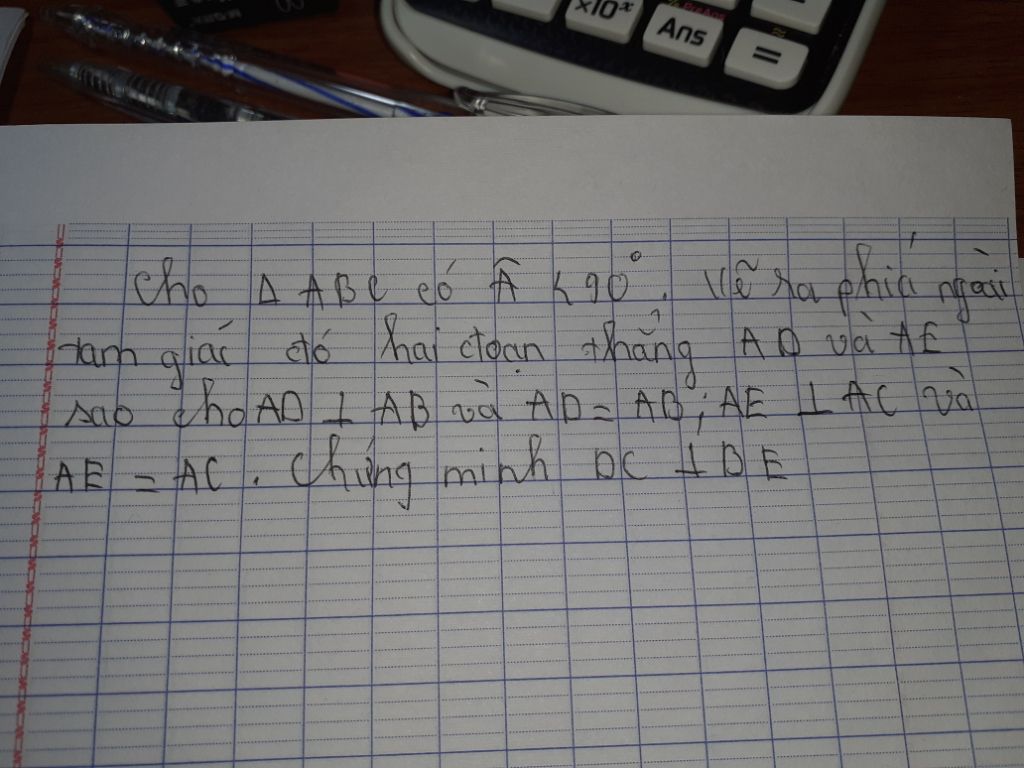 ×10ˣ
Ans
=
Cho Δ ABC có Â < 90°. Vẽ ra phía ngoài
tam giác đó hai đoạn thẳng AD và AE
sao cho AD ⊥ AB và AD = AB; AE ⊥ AC và
AE = AC. Chứng minh DC ⊥ BE